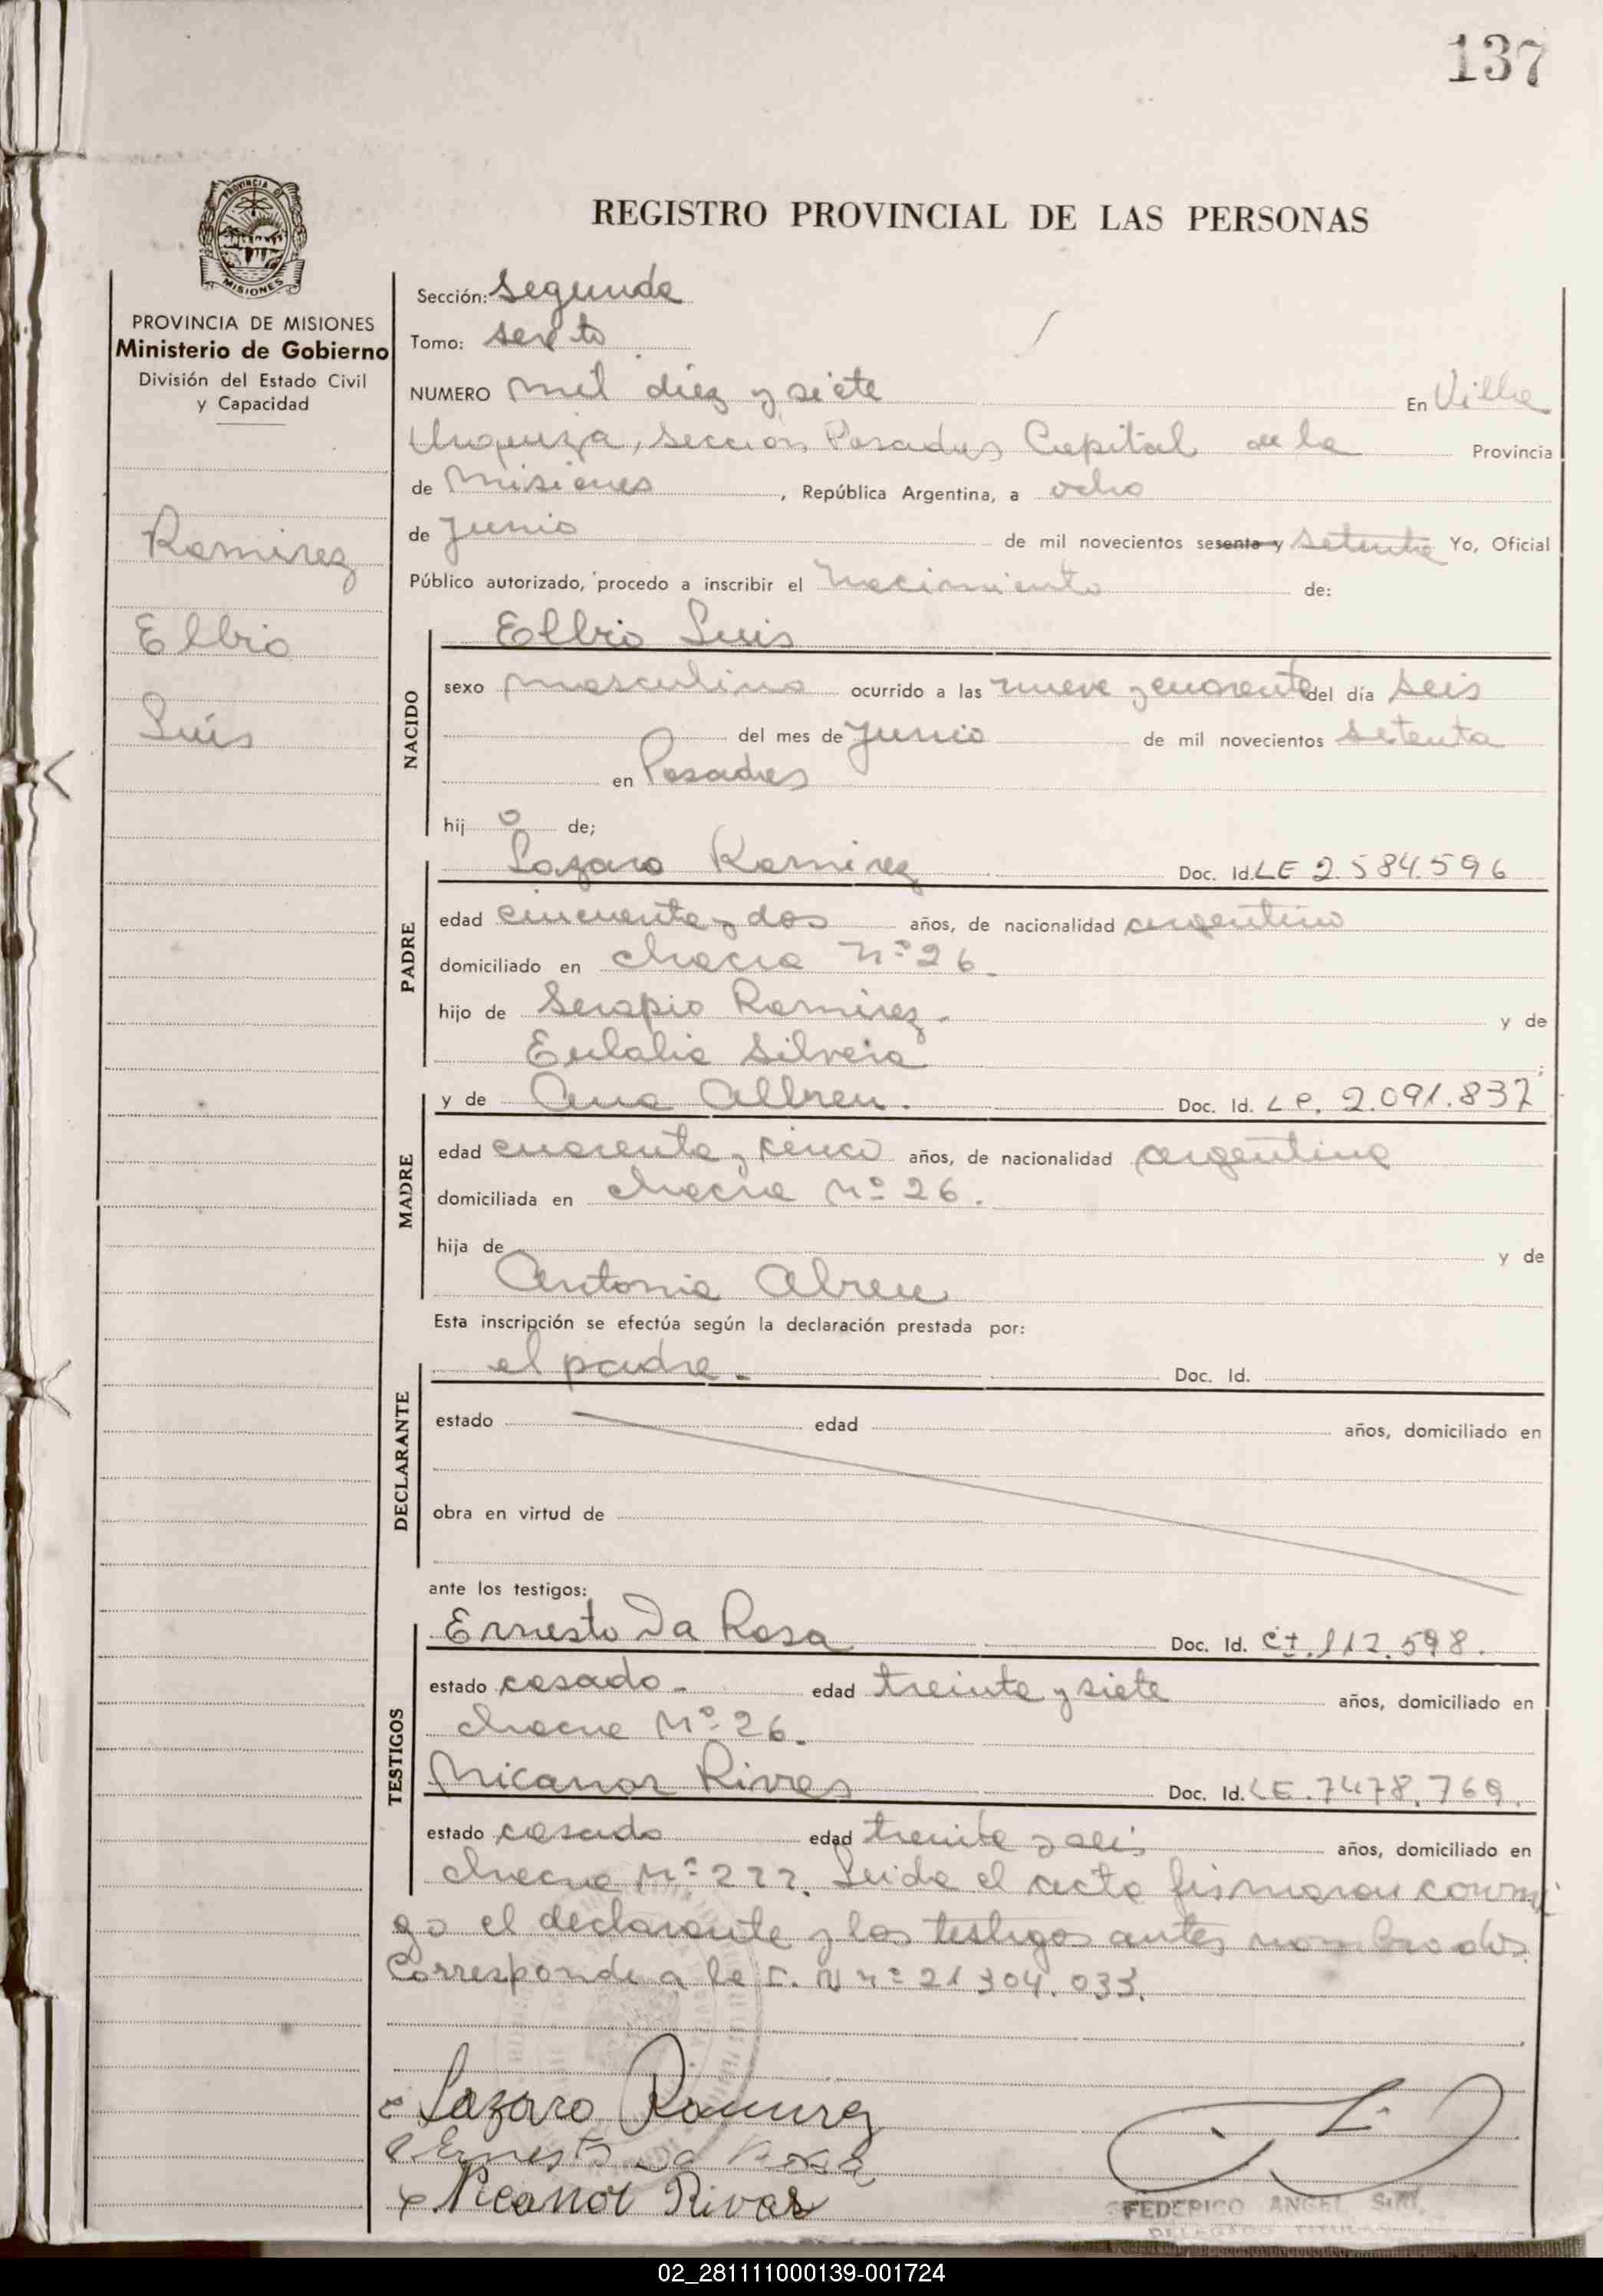 137
PROVINCIA DE MISIONES
REGISTRO PROVINCIAL DE LAS PERSONAS
PROVINCIA DE MISIONES
Ministerio de Gobierno
División del Estado Civil
y Capacidad
Ramirez
Elbio
Luís
Sección: Segunda
Tomo: sexto
NUMERO mil diez y siete En Villa
Urquiza, sección Posadas Capital de la Provincia
de Misiones, República Argentina, a ocho
de Junio de mil novecientos sesenta y setenta Yo, Oficial
Público autorizado, procedo a inscribir el nacimiento de:
NACIDO
Elbio Luis
sexo masculino ocurrido a las nueve y cuarenta del día seis
del mes de Junio de mil novecientos setenta
en Posadas
hijo de;
PADRE
Lazaro Ramirez Doc. Id. LE 2.584.596
edad cincuenta y dos años, de nacionalidad argentino
domiciliado en chacra Nº 26.
hijo de Serapio Ramirez. y de
Eulalia Silveira;
MADRE
y de Ana Abreu. Doc. Id. L.C. 2.091.837
edad cuarenta y cinco años, de nacionalidad argentina
domiciliada en chacra Nº 26.
hija de y de
Antonia Abreu
Esta inscripción se efectúa según la declaración prestada por:
DECLARANTE
el padre. Doc. Id.
estado edad años, domiciliado en
obra en virtud de
ante los testigos:
TESTIGOS
Ernesto Da Rosa Doc. Id. C.I. 112.598.
estado casado. edad treinta y siete años, domiciliado en
chacra Nº 26.
Nicanor Rivas Doc. Id. LE. 7478.769.
estado casado edad treinta y seis años, domiciliado en
chacra Nº 222. Leida el acta firmaron conmi
go el declarante y los testigos antes nombrados
Corresponde a la L. N nº 21 304.033.
Lazaro Ramirez
Ernesto Da Rosa
Nicanor Rivas
FEDERICO ANGEL
DELEGADO TITULAR
02_281111000139-001724